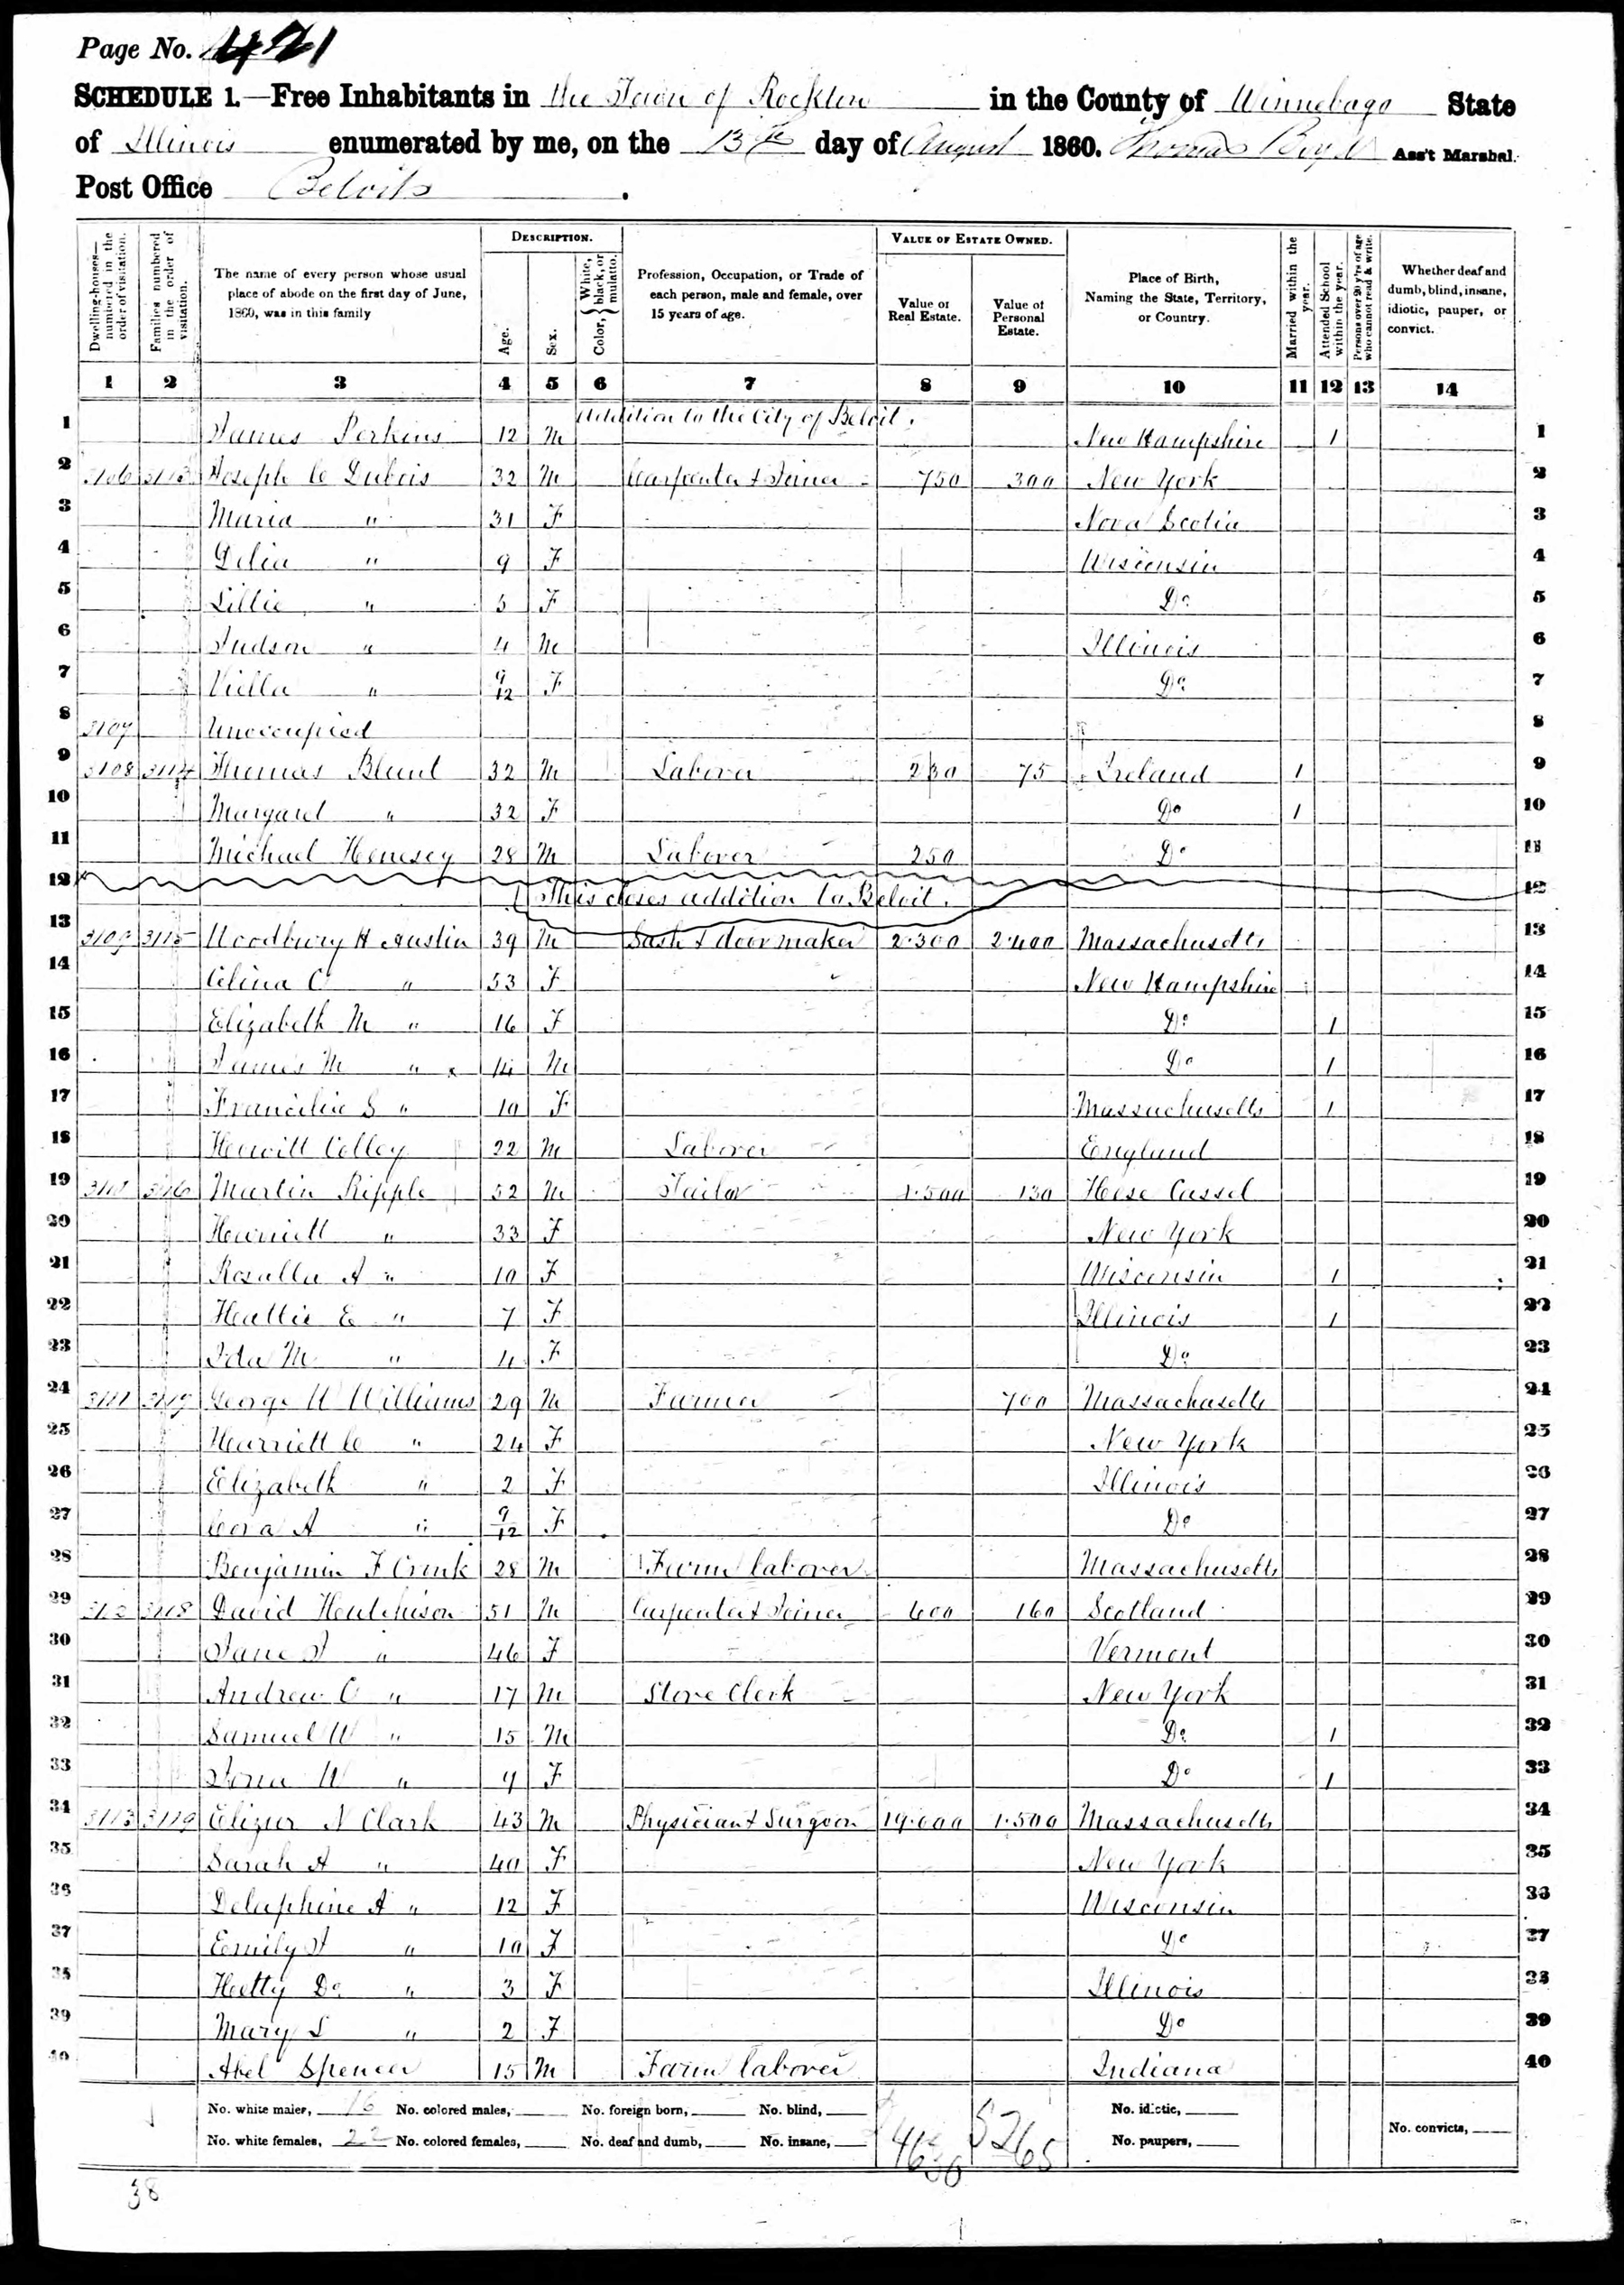 Page No. 421
SCHEDULE 1.—Free Inhabitants in the Town of Rockton in the County of Winnebago State
of Illinois enumerated by me, on the 13th day of August 1860. Thomas Boyd Ass't Marshal.
Post Office Beloit
Dwelling-houses—numbered in the order of visitation.
Families numbered in the order of visitation.
The name of every person whose usual place of abode on the first day of June, 1860, was in this family
DESCRIPTION.
Age.
Sex.
Color, { White, black, or mulatto.
Profession, Occupation, or Trade of each person, male and female, over 15 years of age.
VALUE OF ESTATE OWNED.
Value of Real Estate.
Value of Personal Estate.
Place of Birth, Naming the State, Territory, or Country.
Married within the year.
Attended School within the year.
Persons over 20 y'rs of age who cannot read & write.
Whether deaf and dumb, blind, insane, idiotic, pauper, or convict.
1 2 3 4 5 6 7 8 9 10 11 12 13 14
Addition to the City of Beloit.
1 James Perkins 12 M New Hampshire 1 1
2 3106 3113 Joseph C Dubois 32 M Carpenter & Joiner 750 300 New York 2
3 Maria " 31 F Nova Scotia 3
4 Delia " 9 F Wisconsin 4
5 Lillie " 5 F Do 5
6 Judson " 4 M Illinois 6
7 Viella " 9/12 F Do 7
8 3107 Unoccupied 8
9 3108 3114 Thomas Blunt 32 M Laborer 230 75 Ireland 1 9
10 Margaret " 32 F Do 1 10
11 Michael Henesey 28 M Laborer 250 Do 11
12 This closes addition to Beloit. 12
13 3109 3115 Woodbury H Austin 39 M Sash & door maker 2.300 2.400 Massachusetts 13
14 Celina C " 53 F New Hampshire 14
15 Elizabeth M " 16 F Do 1 15
16 James M " 14 M Do 1 16
17 Francilia S " 10 F Massachusetts 1 17
18 Hewitt Colley 22 M Laborer England 18
19 3110 3116 Martin Ripple 52 M Tailor 1.500 130 Hese Cassel 19
20 Harriett " 33 F New York 20
21 Rosalla A " 10 F Wisconsin 1 21
22 Hattie E " 7 F Illinois 1 22
23 Ida M " 4 F Do 23
24 3111 3117 George W Williams 29 M Farmer 700 Massachusetts 24
25 Harriett C " 24 F New York 25
26 Elizabeth " 2 F Illinois 26
27 Cora A " 9/12 F Do 27
28 Benjamin F Cronk 28 M Farm laborer Massachusetts 28
29 3112 3118 David Hutchison 51 M Carpenter & Joiner 600 160 Scotland 29
30 Jane " 46 F Vermont 30
31 Andrew C " 17 M Store Clerk New York 31
32 Samuel W " 15 M Do 1 32
33 W " 9 F Do 1 33
34 3113 3119 Elizur N Clark 43 M Physician & Surgeon 19.000 1.500 Massachusetts 34
35 Sarah A " 40 F New York 35
36 Delaphine A " 12 F Wisconsin 36
37 Emily " 10 F Do 37
38 Hetty Do " 3 F Illinois 38
39 Mary L " 2 F Do 39
40 Abel Spencer 15 M Farm laborer Indiana 40
No. white males, 16 No. colored males, No. foreign born, No. blind, No. idiotic,
No. white females, 22 No. colored females, No. deaf and dumb, No. insane, 5265 No. paupers, No. convicts,
38